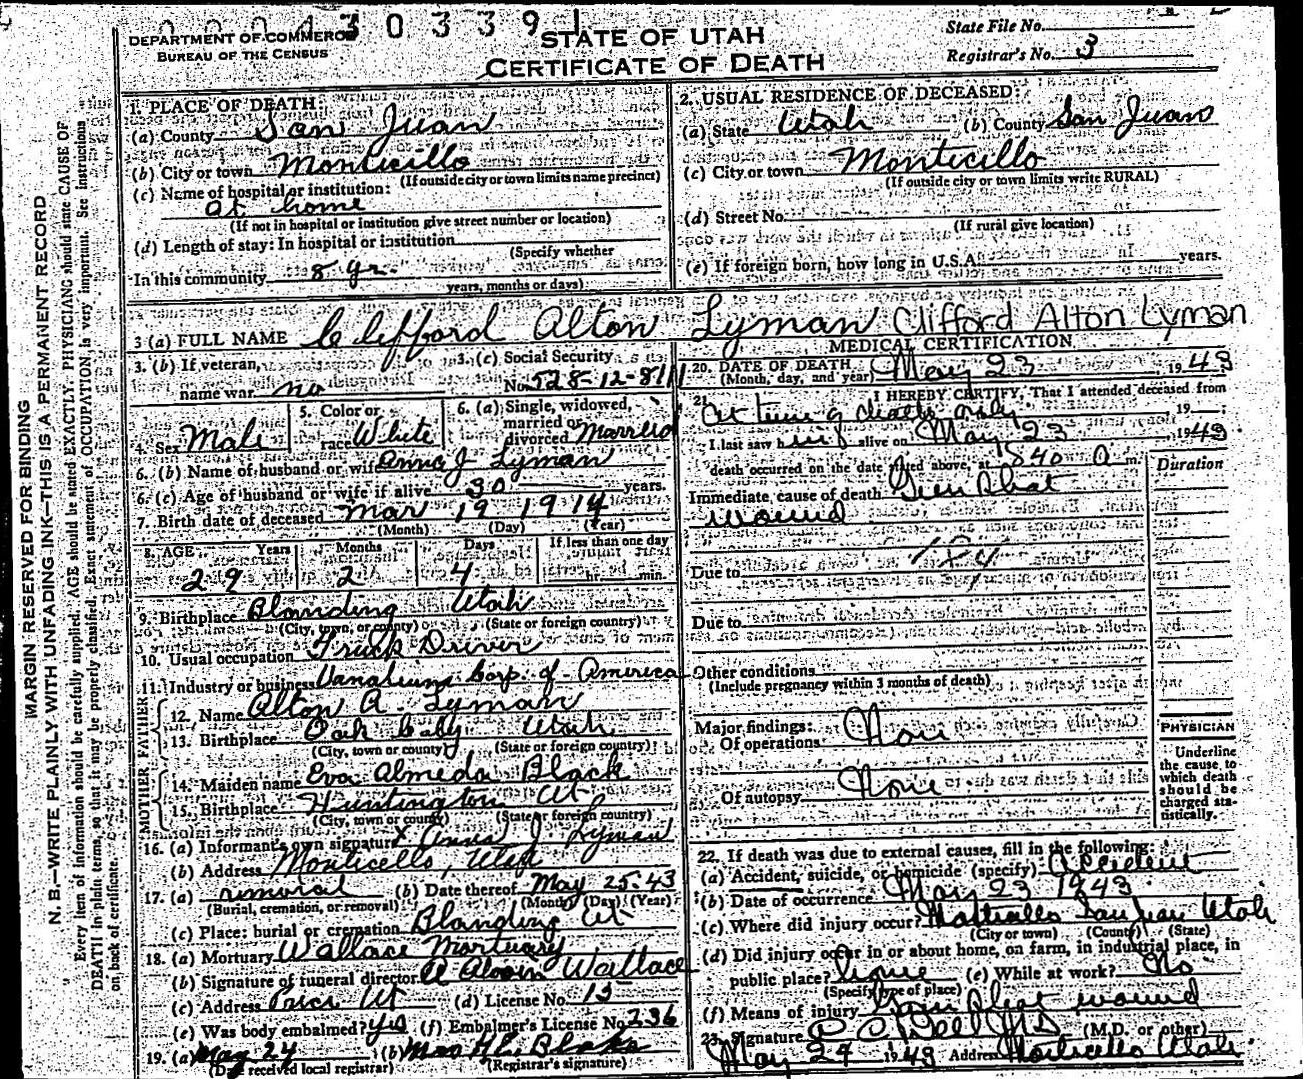 0004303391
DEPARTMENT OF COMMERCE
BUREAU OF THE CENSUS
STATE OF UTAH
CERTIFICATE OF DEATH
State File No.
Registrar's No. 3
MARGIN RESERVED FOR BINDING
N. B.—WRITE PLAINLY WITH UNFADING INK—THIS IS A PERMANENT RECORD
Every item of information should be carefully supplied. AGE should be stated EXACTLY. PHYSICIANS should state CAUSE OF
DEATH in plain terms, so that it may be properly classified. Exact statement of OCCUPATION is very important. See instructions
on back of certificate.
1. PLACE OF DEATH:
(a) County San Juan
(b) City or town Monticillo
(If outside city or town limits name precinct)
(c) Name of hospital or institution:
at home
(If not in hospital or institution give street number or location)
(d) Length of stay: In hospital or institution
(Specify whether
In this community 8 yr.
years, months or days)
2. USUAL RESIDENCE OF DECEASED:
(a) State Utah (b) County San Juan
(c) City or town Monticillo
(If outside city or town limits write RURAL)
(d) Street No.
(If rural give location)
(e) If foreign born, how long in U.S.A. years.
3 (a) FULL NAME Clifford Alton Lyman Clifford Alton Lyman
3. (b) If veteran, name war no
3. (c) Social Security No. 528-12-8111
4. Sex Male
5. Color or race White
6. (a) Single, widowed, married or divorced Married
6. (b) Name of husband or wife Anna J Lyman
6. (c) Age of husband or wife if alive 30 years.
7. Birth date of deceased Mar 19 1914
(Month) (Day) (Year)
8. AGE Years Months Days If less than one day
29 2 4 hr. min.
9. Birthplace Blanding Utah
(City, town, or county) (State or foreign country)
10. Usual occupation Truck Driver
11. Industry or business Vanadium Corp. of America
FATHER
12. Name Alton A. Lyman
13. Birthplace Oak City Utah
(City, town or county) (State or foreign country)
MOTHER
14. Maiden name Eva Almeda Black
15. Birthplace Huntington Ut
(City, town or county) (State or foreign country)
16. (a) Informant's own signature x Anna J Lyman
(b) Address Monticello, Utah
17. (a) removal (b) Date thereof May 25-43
(Burial, cremation, or removal) (Month) (Day) (Year)
(c) Place: burial or cremation Blanding Ut
18. (a) Mortuary Wallace Mortuary
(b) Signature of funeral director Wallace
(c) Address Price Ut (d) License No. 15
(e) Was body embalmed? yes (f) Embalmer's License No. 236
19. (a) May 24 (b) Mrs
(Date received local registrar) (Registrar's signature)
MEDICAL CERTIFICATION
20. DATE OF DEATH May 23 1943
(Month, day, and year)
21. I HEREBY CERTIFY, That I attended deceased from
At time of death only 19
I last saw him alive on May 23, 1943
death occurred on the date stated above, at 840 a m.
Duration
Immediate cause of death Gun Shot
wound
Due to
Due to
Other conditions
(Include pregnancy within 3 months of death)
Major findings:
Of operations None
Of autopsy None
PHYSICIAN
Underline
the cause to
which death
should be
charged sta-
tistically.
22. If death was due to external causes, fill in the following:
(a) Accident, suicide, or homicide (specify) Accident
(b) Date of occurrence May 23 1943
(c) Where did injury occur? Monticello San Juan Utah
(City or town) (County) (State)
(d) Did injury occur in or about home, on farm, in industrial place, in
public place? home (e) While at work? No
(Specify type of place)
(f) Means of injury Gun Shot wound
23. Signature (M.D. or other)
May 24 1943 Address Monticello Utah